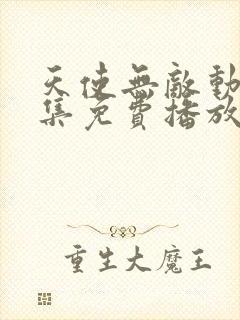 天使無敵動
集免費播放
重生大魔王